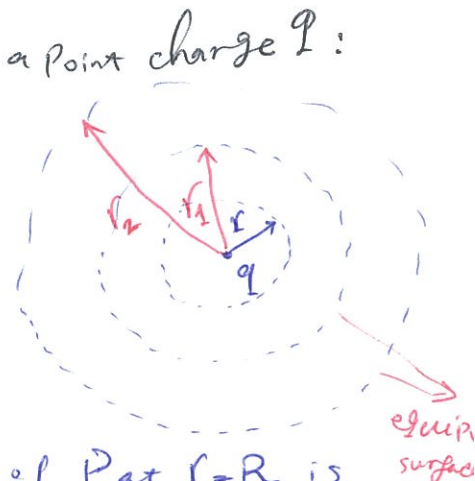 a point charge q:
r₂
r₁
r
q
surface
of P at r=R is